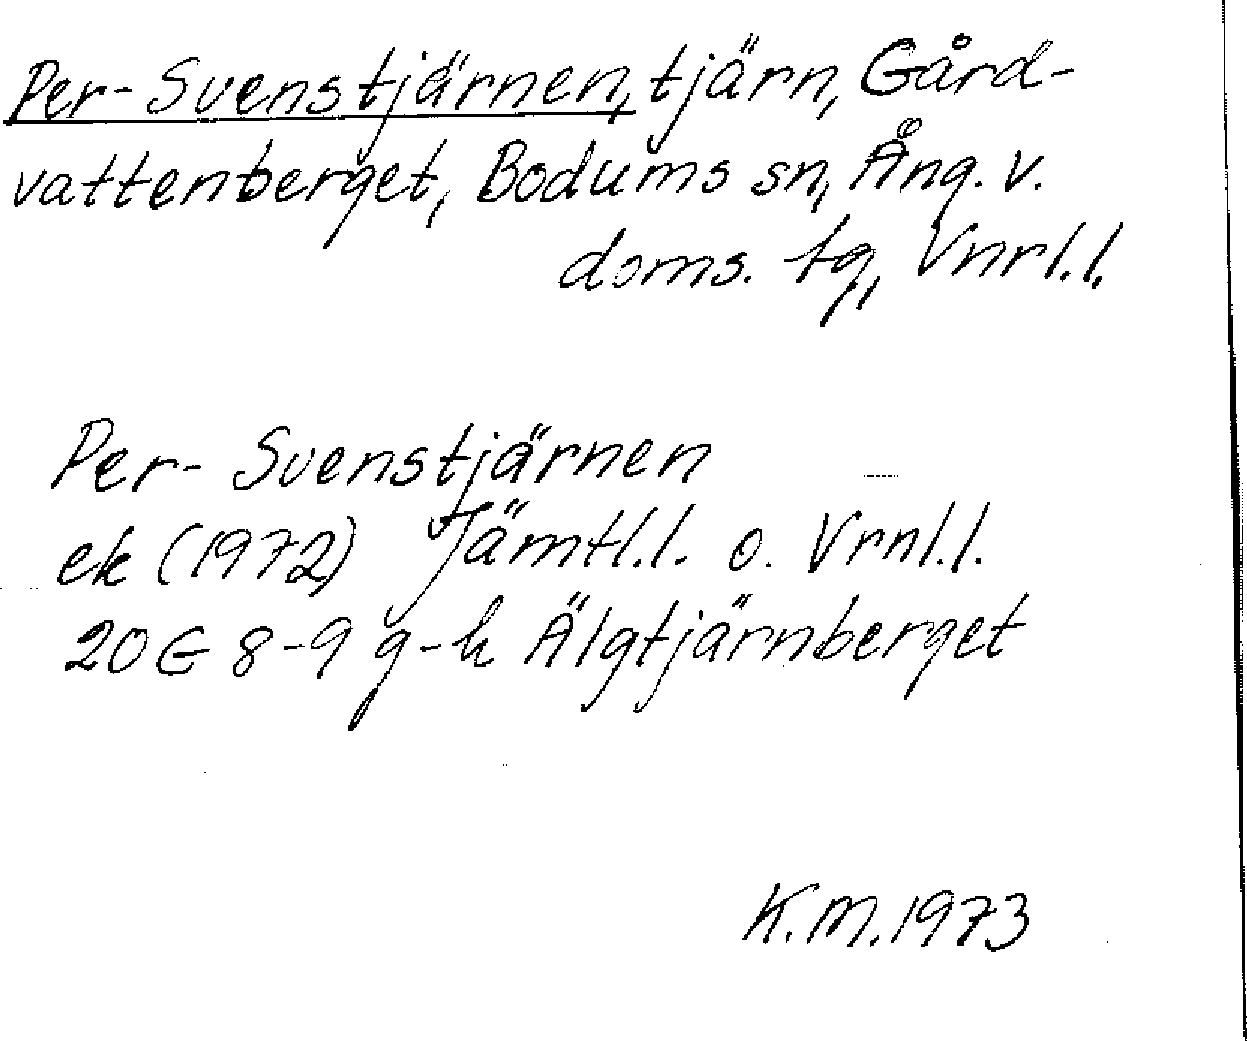 Per-Svenstjärnen, tjärn, Gård-
vattenberget, Bodums sn, Ång. v.
doms. tg, Vnrl.l.
Per-Svenstjärnen
ek (1972) Jämtl.l. o. Vrnl.l.
20G 8-9 g-h Älgtjärnberget
K.M.1973